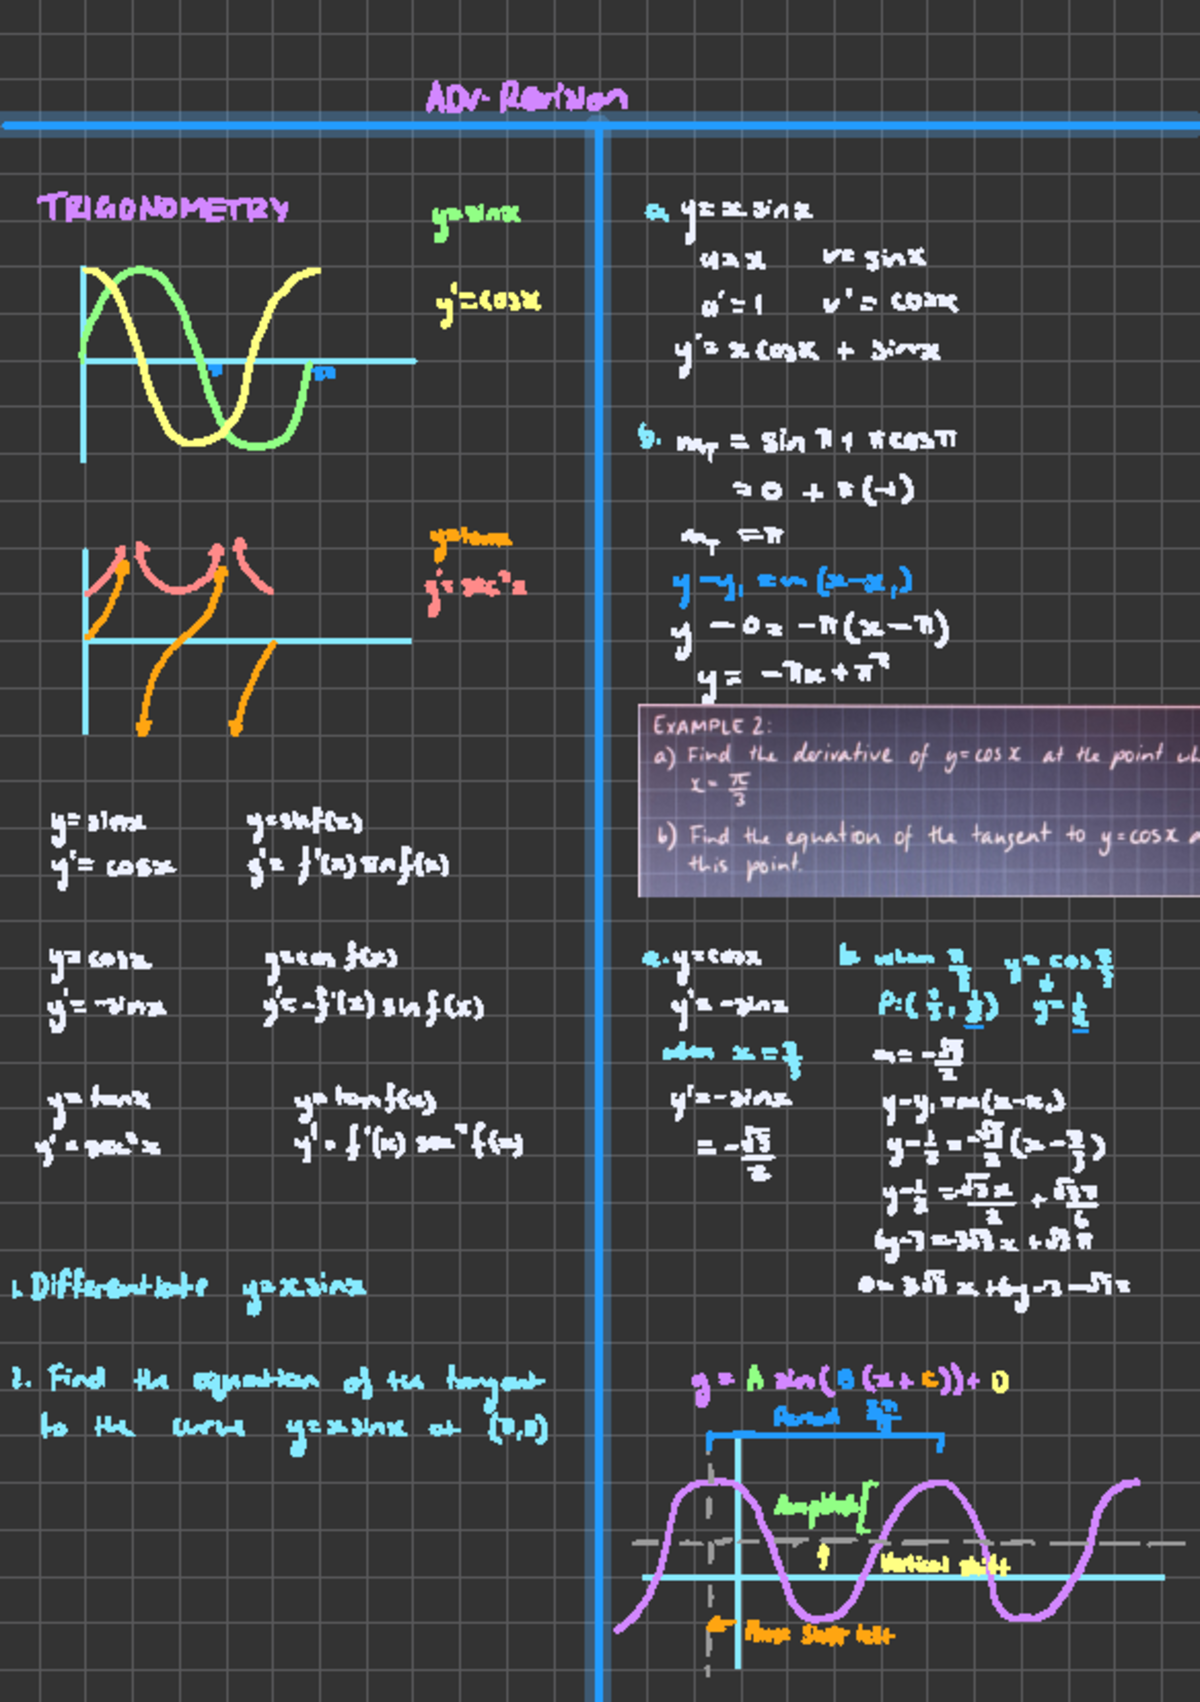 ADV- Revision
TRIGONOMETRY
y=sinx
y'=cosx
π
2π
y=tanx
y'=sec²x
y=sinx
y'= cosx
y=sinf(x)
y'= f'(x) sin f(x)
y=cosx
y'=-sinx
y=cos f(x)
y'=-f'(x) sin f(x)
y=tanx
y'=sec²x
y=tanf(x)
y'= f'(x) sec² f(x)
1. Differentiate y=xsinx
2. Find the equation of the tangent
to the curve y=xsinx at (π,0)
a. y=xsinx
u=x v=sinx
u'=1 v'=cosx
y'=xcosx + sinx
b. mT = sin π + πcosπ
=0 + π(-1)
mT =π
y-y₁ =m(x-x₁)
y -0= -π(x-π)
y= -πx+π²
EXAMPLE 2:
a) Find the derivative of y=cosx at the point
x= π/3
b) Find the equation of the tangent to y=cosx
this point.
a. y=cosx
y'=-sinx
when x=π/3
y'=-sinx
= -√3/2
b. when π/3 y=cos π/3
P:(π/3, 1/2) y=1/2
m=-√3/2
y-y₁=m(x-x₁)
y-1/2=-√3/2(x-π/3)
y-1/2=-√3x/2 + √3π/6
6y-3=-3√3x+√3π
0=3√3x+6y-3-√3π
y=A sin(B(x+C))+D
Period 2π/B
Amplitude
Vertical shift
Phase Shift left